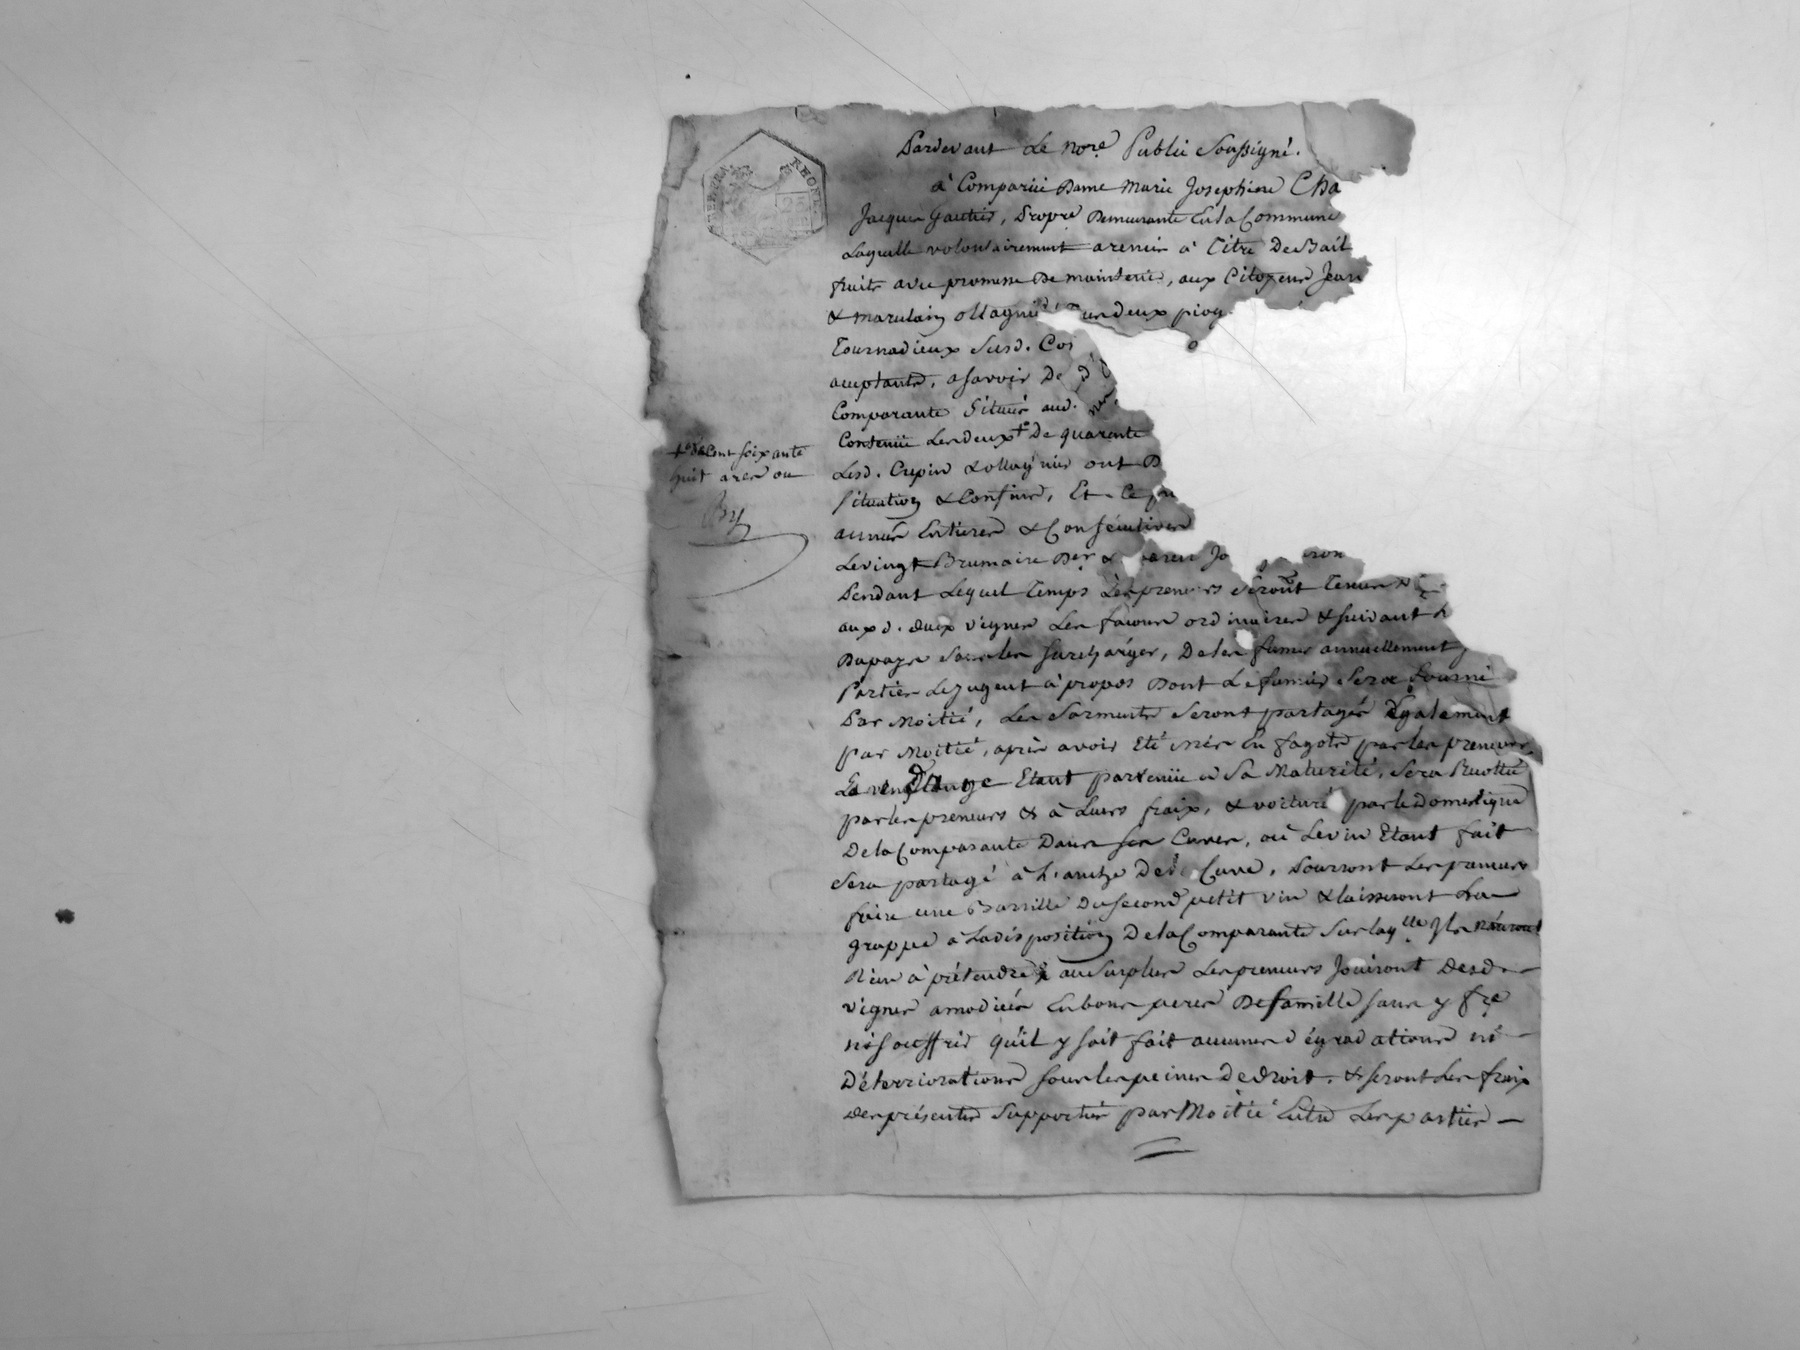 RHONE
Pardevant Le No.re Public Soussigné.
à Comparüe Dame Marie Josephine Cha
Jacques Gautier, Propre Demeurante En la Commune
Laquelle volontairement a remis à Titre De Bail
fruits avec promesse De maintenir, aux Citoyens Jean
& Marulain ollagnier deux piog
Tournadieux Susd. Co
acceptants, asavoir De
Comparante Situées aud.
Contenüe Les deux + De quarante
+ De Cent soixante
huit ares ou
Lesd. Crepin & ollagnier ont
Situation & Confins, Et Ce
années Entieres & Consécutives
Le vingt Brumaire Der &
Pendant Lequel Temps Les preneurs seront Tenus
aux d. deux vignes Les façons ordinaires & suivant
Du pays sans les surcharger, De les fumer annuellement
Parties Le Jugent à propos Dont Le fumier Sera fourni
Par Moitié, Les Sarments Seront partagés Également
par Moitié, après avoir Eté mis En fagots par les preneurs
La vendange Etant parvenüe à Sa Maturité, Sera Recoltée
par les preneurs & à Leurs fraix, & voituré par le Domestique
De la Comparante Dans ses Cuves, où Le vin Etant fait
Sera partagé à L'anche De la Cuve, Pourront Les preneurs
faire une Barrille Du second petit vin & laisseront La
grappe à La disposition De la Comparante Sur laq.lle Ils n'auront
Rien à prétendre & au Surplus Les preneurs Jouiront Desd.
vignes amodiées En bons peres De famille sans y f.re
ni souffrir qu'il y soit fait aucunes dégradations ni
Déterriorations sous les peines De droit, & seront Les fraix
Des présentes Supportés par Moitié Entre Les parties